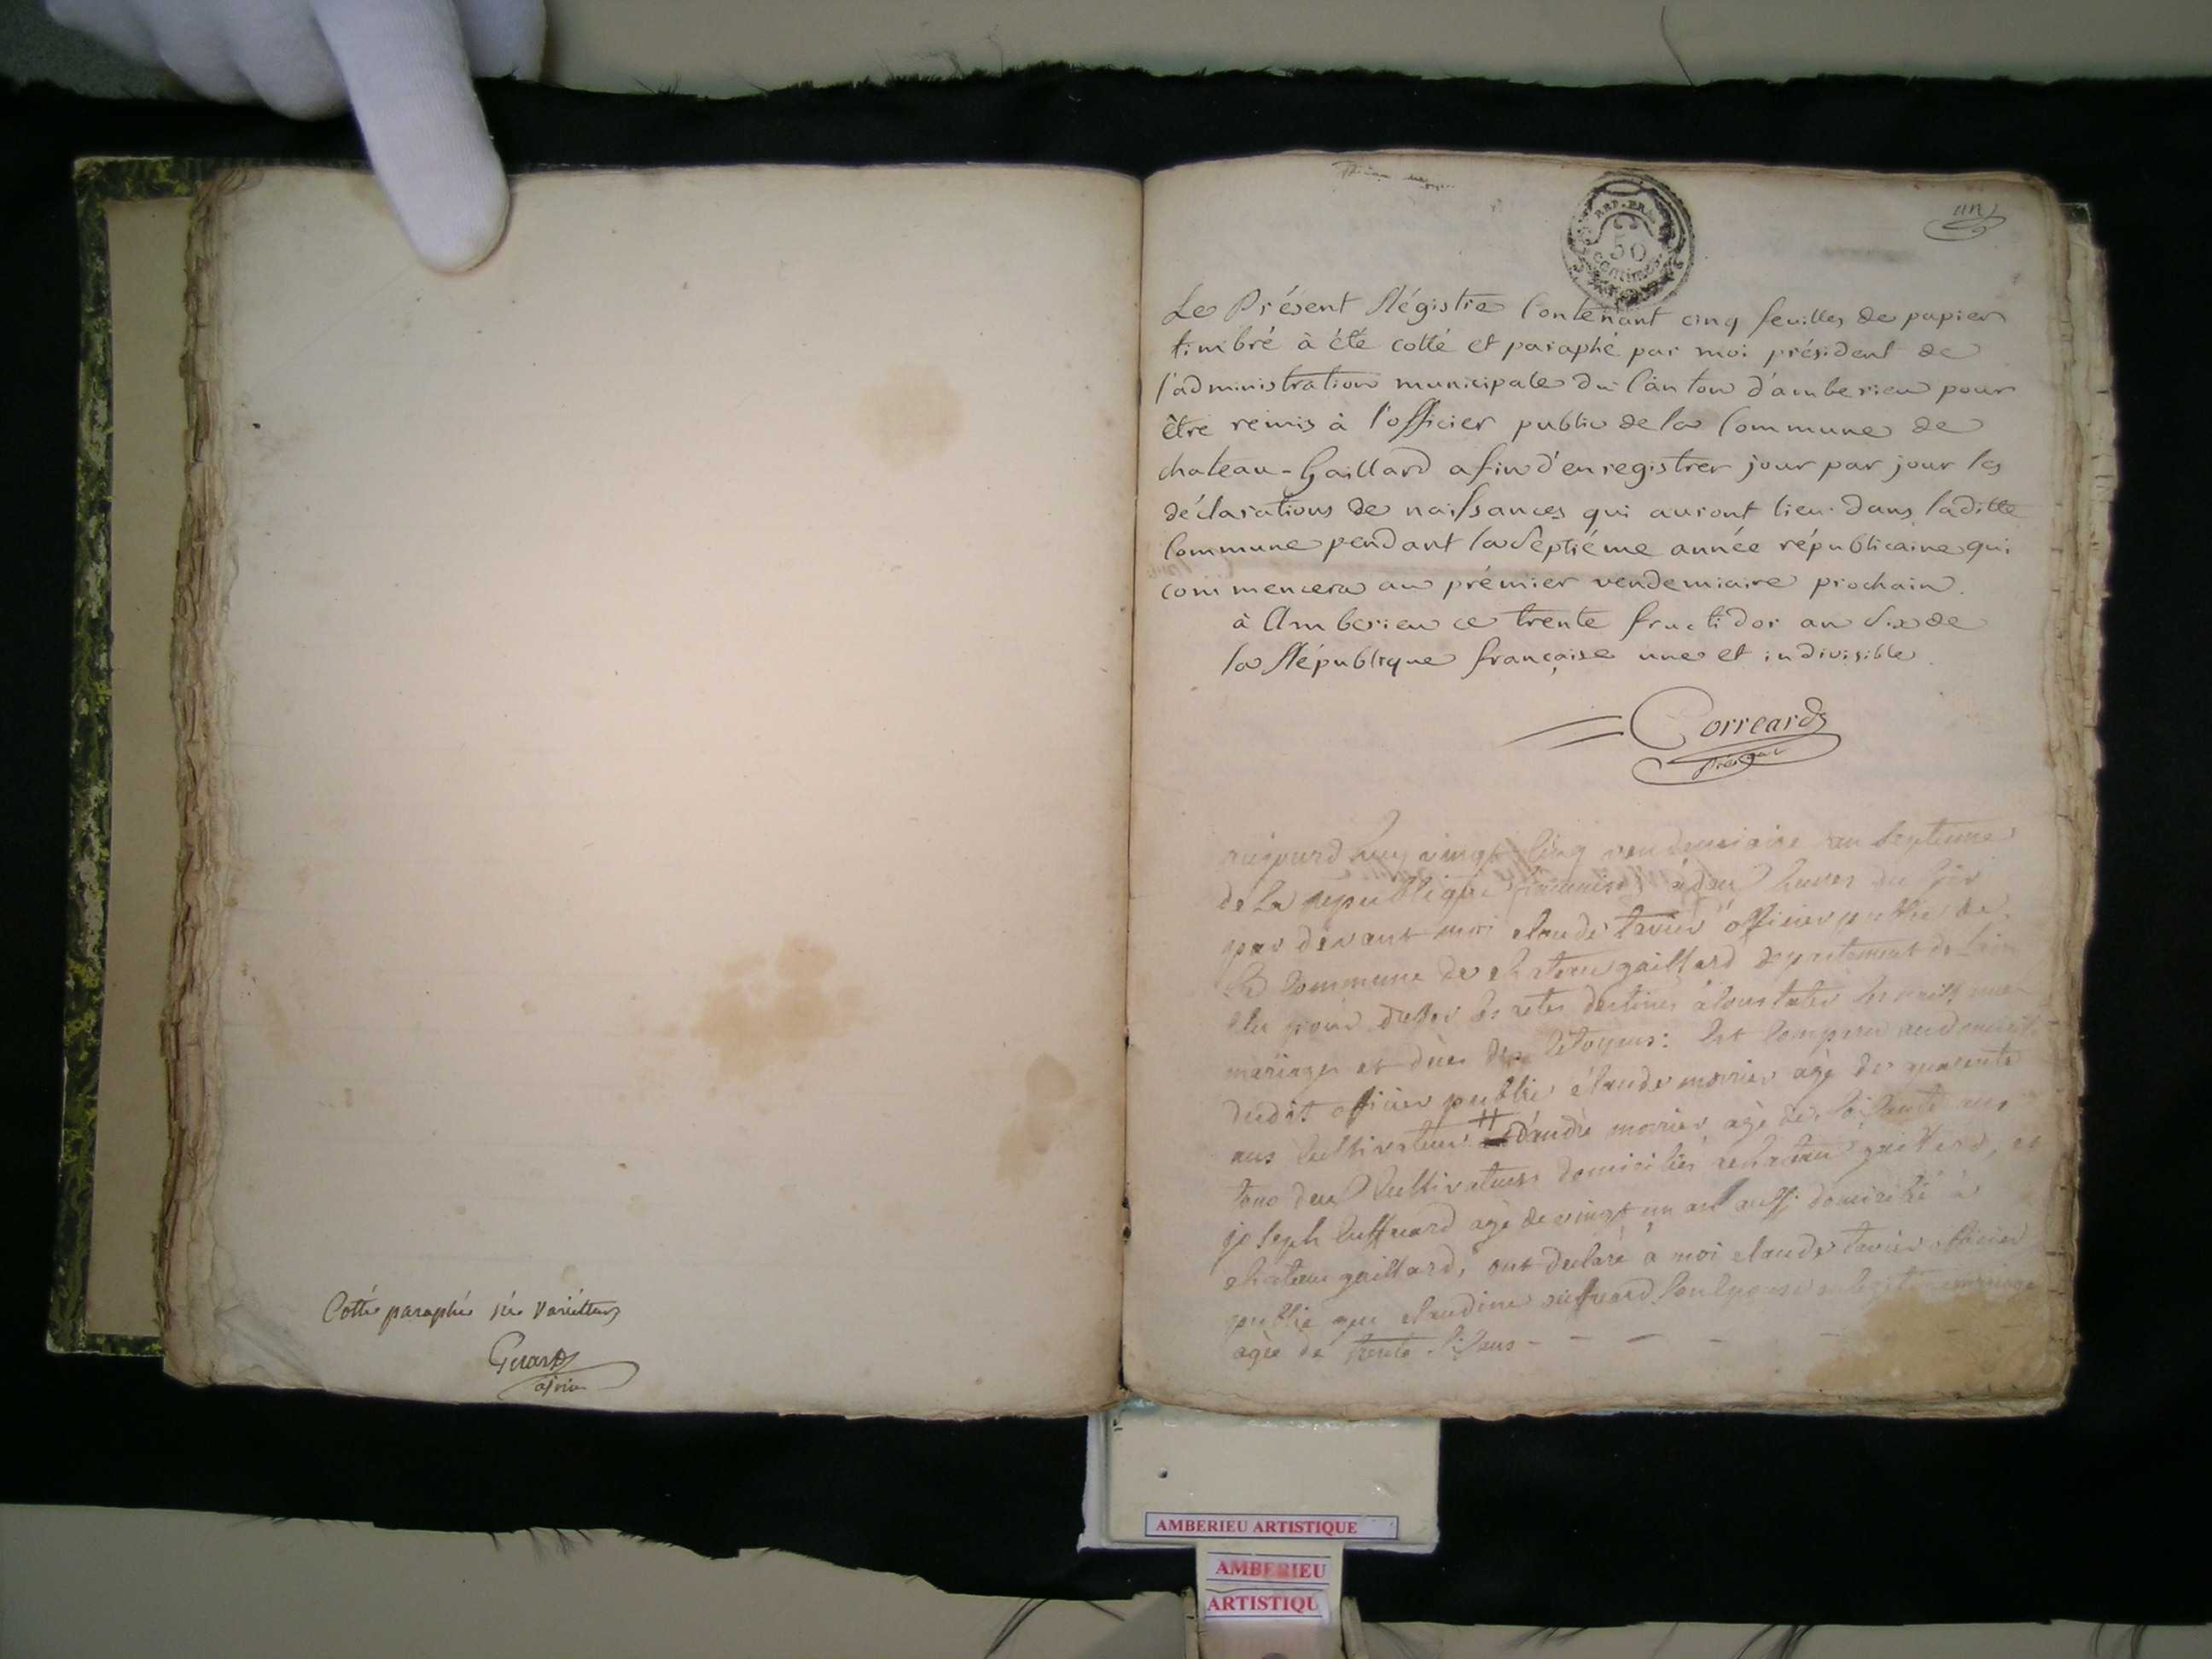 Cotté paraphé né variétur
Girard
ajoin
un
REP. FRA
50
centimes
Le Présent Régistre Contenant cinq feuilles de papier
timbré à été cotté et paraphé par moi président de
l'administration municipale du Canton d'amberieu pour
être remis à l'officier public de la Commune de
chateau-Gaillard afin d'enregistrer jour par jour les
déclarations de naissances qui auront lieu dans laditte
Commune pendant la Septiéme année républicaine qui
commencera au prémier vendemiaire prochain.
à Amberieu ce trente fructidor an Six de
la République française une et indivisible.
Correard
aujourdhuy vingt cinq vendemiaire an septieme
de la republique francaise à deux heures du soir
par devant moi claude tavier officier public de
la Commune de chateau gaillard departement de l'ain
elu pour dresser les actes destinés à constater les naissances
mariages et deces des Citoyens: est comparu
dudit officier public claude morrier agé de quarente
ans cultivateur # d'andré morrier agé de soisante ans
tous deux Cultivateurs domiciliés achateau gaillard, et
joseph agé de vingt un ans aussi domicilié à
chateau gaillard, ont declaré à moi claude tavier officier
public que claudine son epouse en legitime mariage
agée de trente ans
AMBERIEU ARTISTIQUE
AMBERIEU
ARTISTIQU